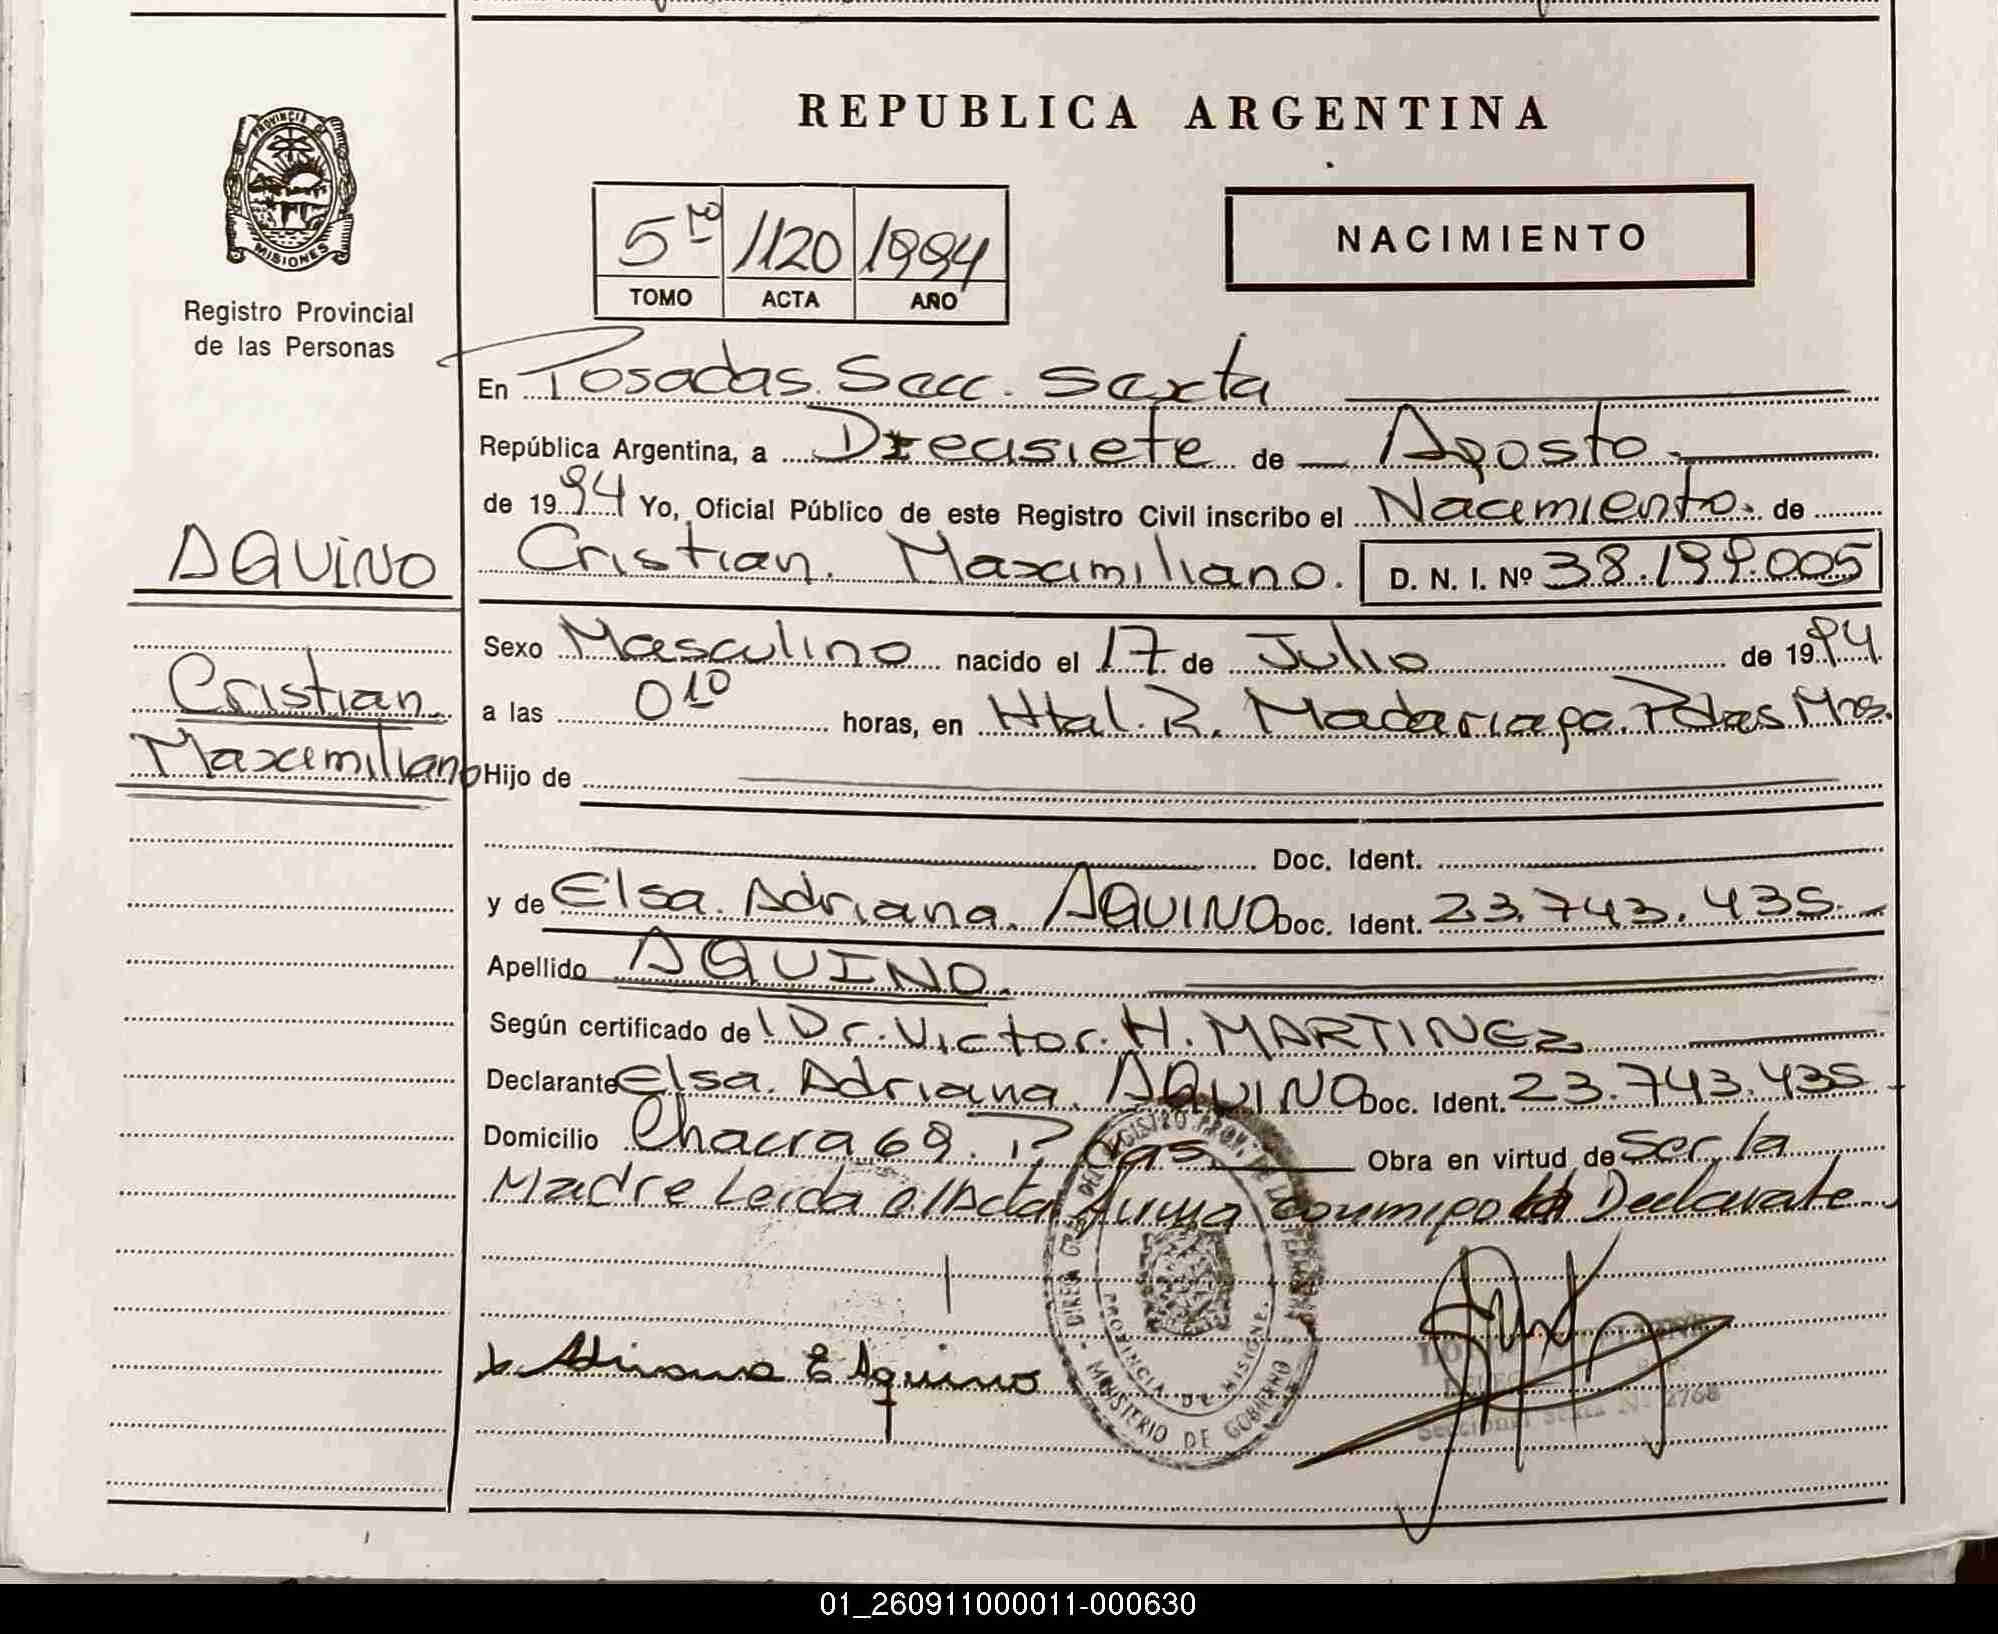 REPUBLICA ARGENTINA
PROVINCIA DE MISIONES
Registro Provincial
de las Personas
5to 1120 1994
TOMO ACTA AÑO
NACIMIENTO
En Posadas. Secc. Sexta
República Argentina, a Diecisiete de Agosto.
de 1994 Yo, Oficial Público de este Registro Civil inscribo el Nacimiento. de
AQUINO
Cristian. Maximiliano. D. N. I. Nº 38.199.005
Sexo Masculino nacido el 17 de Julio de 1994
Cristian.
a las 0 10 horas, en Htal. R. Madariaga. Pdas Mnes.
Maximiliano
Hijo de
Doc. Ident.
y de Elsa. Adriana. AQUINO Doc. Ident. 23.743.435.
Apellido AQUINO.
Según certificado de Dr. Victor. H. MARTINEZ
Declarante Elsa. Adriana. AQUINO Doc. Ident. 23.743.435
Domicilio Chacra 69. Pdas Obra en virtud de Ser. la
Madre Leida el Acta firma conmigo la Declarate
DIREC. GRAL. DEL REGISTRO PROV. DE LAS PERSONAS
PROVINCIA DE MISIONES
MINISTERIO DE GOBIERNO
x Adriana E Aquino
Seccional Sexta Nº 2768
01_260911000011-000630